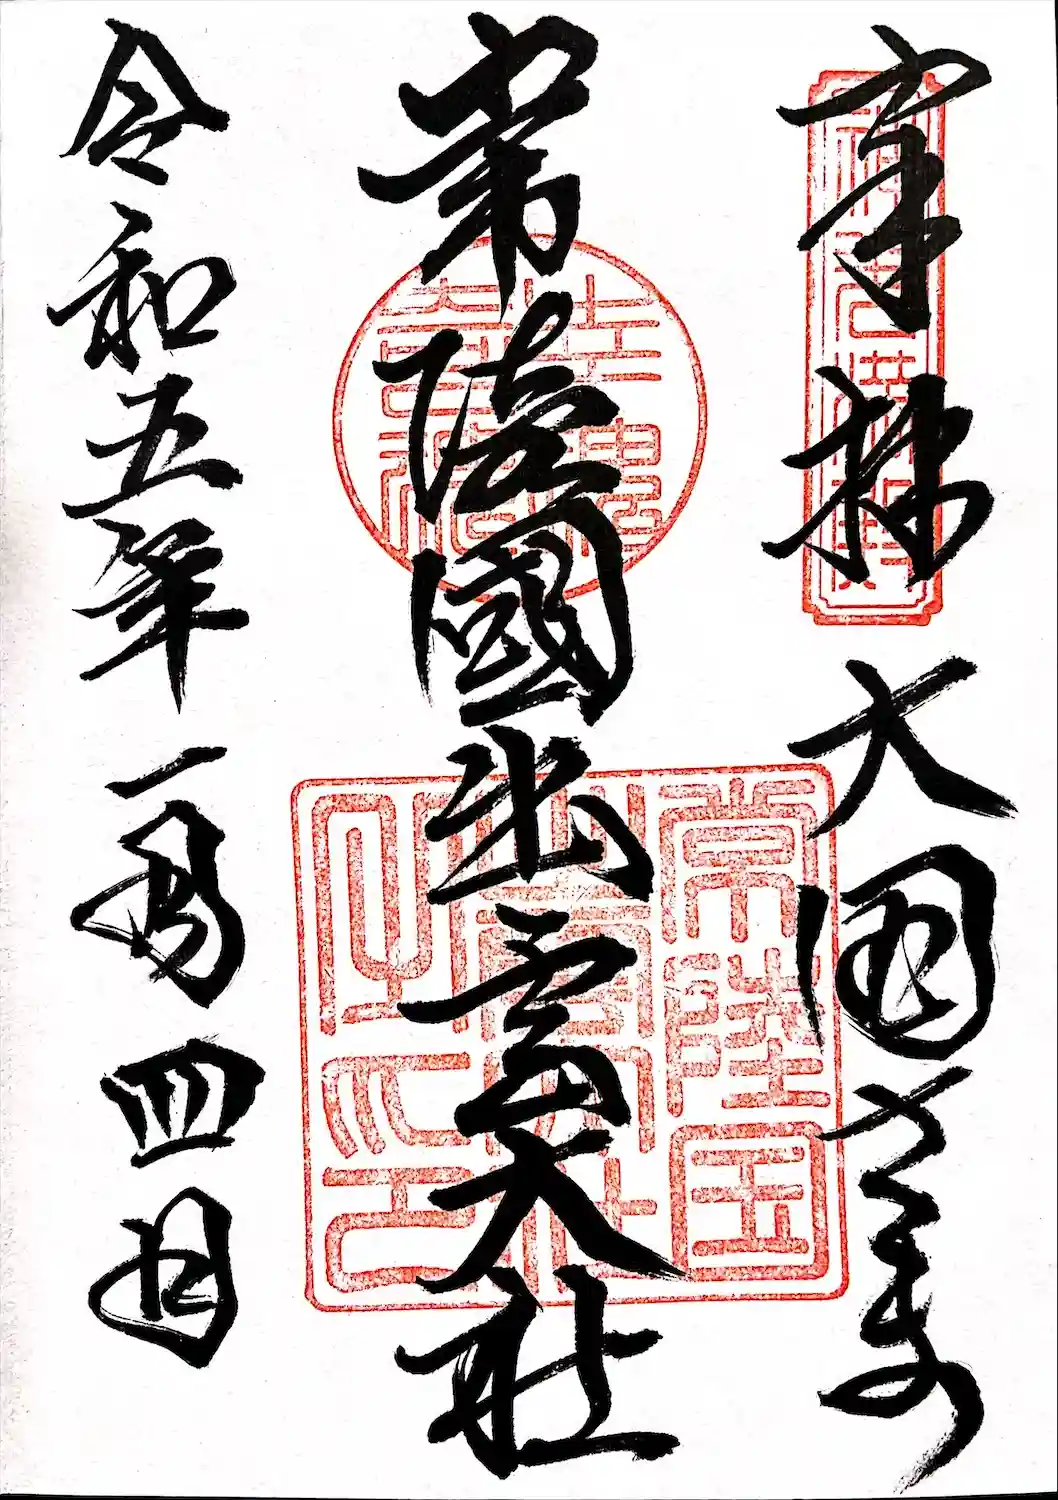 奉拝 大国さま
常陸國出雲大社
令和五年一月四日
常陸国
出雲大社